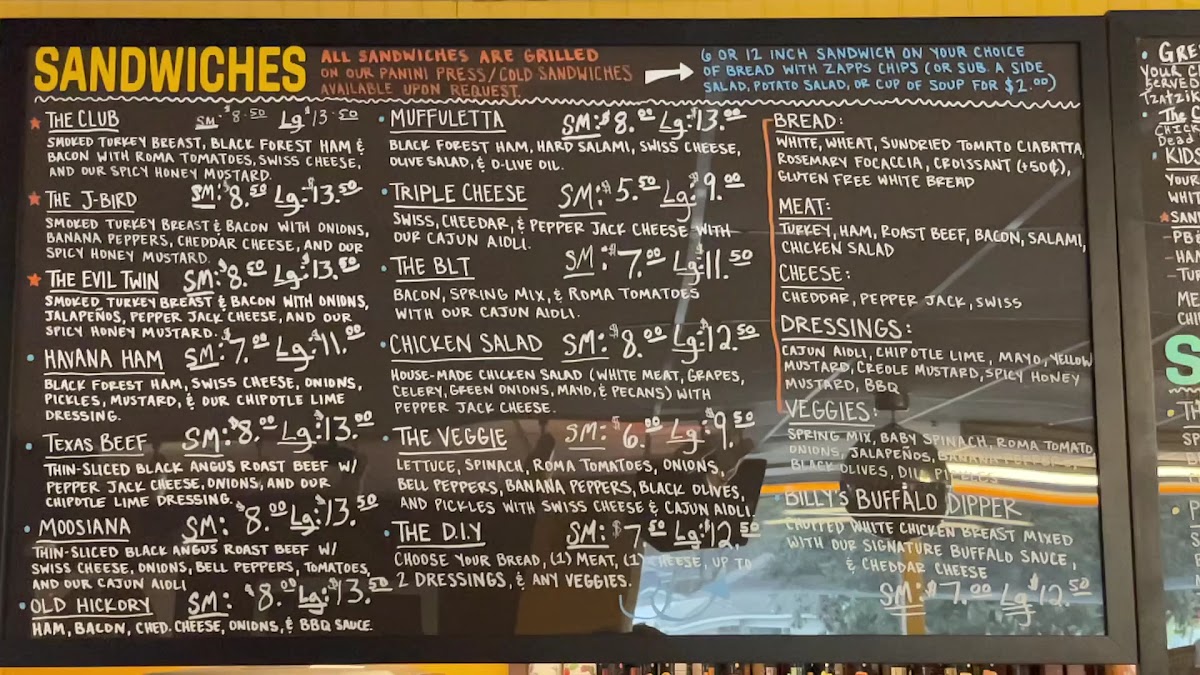 SANDWICHES
ALL SANDWICHES ARE GRILLED
ON OUR PANINI PRESS/COLD SANDWICHES
AVAILABLE UPON REQUEST.
6 OR 12 INCH SANDWICH ON YOUR CHOICE
OF BREAD WITH ZAPPS CHIPS (OR SUB. A SIDE
SALAD, POTATO SALAD, OR CUP OF SOUP FOR $2.00)
THE CLUB SM $8.50 Lg $13.50
SMOKED TURKEY BREAST, BLACK FOREST HAM &
BACON WITH ROMA TOMATOES, SWISS CHEESE,
AND OUR SPICY HONEY MUSTARD.
THE J-BIRD SM: $8.50 Lg: $13.50
SMOKED TURKEY BREAST & BACON WITH ONIONS,
BANANA PEPPERS, CHEDDAR CHEESE, AND OUR
SPICY HONEY MUSTARD.
THE EVIL TWIN SM: $8.50 Lg: $13.50
SMOKED TURKEY BREAST & BACON WITH ONIONS,
JALAPEÑOS, PEPPER JACK CHEESE, AND OUR
SPICY HONEY MUSTARD.
HAVANA HAM SM: $7.00 Lg: $11.00
BLACK FOREST HAM, SWISS CHEESE, ONIONS,
PICKLES, MUSTARD, & OUR CHIPOTLE LIME
DRESSING.
TEXAS BEEF SM: $8.00 Lg: $13.00
THIN-SLICED BLACK ANGUS ROAST BEEF W/
PEPPER JACK CHEESE, ONIONS, AND OUR
CHIPOTLE LIME DRESSING.
MOOSIANA SM: $8.00 Lg: $13.50
THIN-SLICED BLACK ANGUS ROAST BEEF W/
SWISS CHEESE, ONIONS, BELL PEPPERS, TOMATOES,
AND OUR CAJUN AIOLI
OLD HICKORY SM: $8.00 Lg: $13.50
HAM, BACON, CHED. CHEESE, ONIONS, & BBQ SAUCE.
MUFFULETTA SM: $8.00 Lg: $13.00
BLACK FOREST HAM, HARD SALAMI, SWISS CHEESE,
OLIVE SALAD, & O-LIVE OIL.
TRIPLE CHEESE SM: $5.50 Lg: $9.00
SWISS, CHEEDAR, & PEPPER JACK CHEESE WITH
OUR CAJUN AIOLI.
THE BLT SM: $7.00 Lg: $11.50
BACON, SPRING MIX, & ROMA TOMATOES
WITH OUR CAJUN AIOLI.
CHICKEN SALAD SM: $8.00 Lg: $12.50
HOUSE-MADE CHICKEN SALAD (WHITE MEAT, GRAPES,
CELERY, GREEN ONIONS, MAYO, & PECANS) WITH
PEPPER JACK CHEESE.
THE VEGGIE SM: $6.00 Lg: $9.50
LETTUCE, SPINACH, ROMA TOMATOES, ONIONS,
BELL PEPPERS, BANANA PEPPERS, BLACK OLIVES,
AND PICKLES WITH SWISS CHEESE & CAJUN AIOLI.
THE D.I.Y SM: $7.50 Lg: $12.50
CHOOSE YOUR BREAD, (1) MEAT, (1) CHEESE, UP TO
2 DRESSINGS, & ANY VEGGIES.
BREAD:
WHITE, WHEAT, SUNDRIED TOMATO CIABATTA,
ROSEMARY FOCACCIA, CROISSANT (+50¢),
GLUTEN FREE WHITE BREAD
MEAT:
TURKEY, HAM, ROAST BEEF, BACON, SALAMI,
CHICKEN SALAD
CHEESE:
CHEDDAR, PEPPER JACK, SWISS
DRESSINGS:
CAJUN AIOLI, CHIPOTLE LIME, MAYO, YELLOW
MUSTARD, CREOLE MUSTARD, SPICY HONEY
MUSTARD, BBQ
VEGGIES:
SPRING MIX, BABY SPINACH, ROMA TOMATO,
ONIONS, JALAPEÑOS, BANANA PEPPERS,
BLACK OLIVES, DILL PICKLES
BILLY'S BUFFALO DIPPER
CHOPPED WHITE CHICKEN BREAST MIXED
WITH OUR SIGNATURE BUFFALO SAUCE,
& CHEDDAR CHEESE
SM: $7.00 Lg: $12.50
GRE
YOUR C
SERVED
TZATZIK
THE C
KIDS
YOUR
WHIT
SAN
-PB&
-HAM
-TU
ME
CHI
S